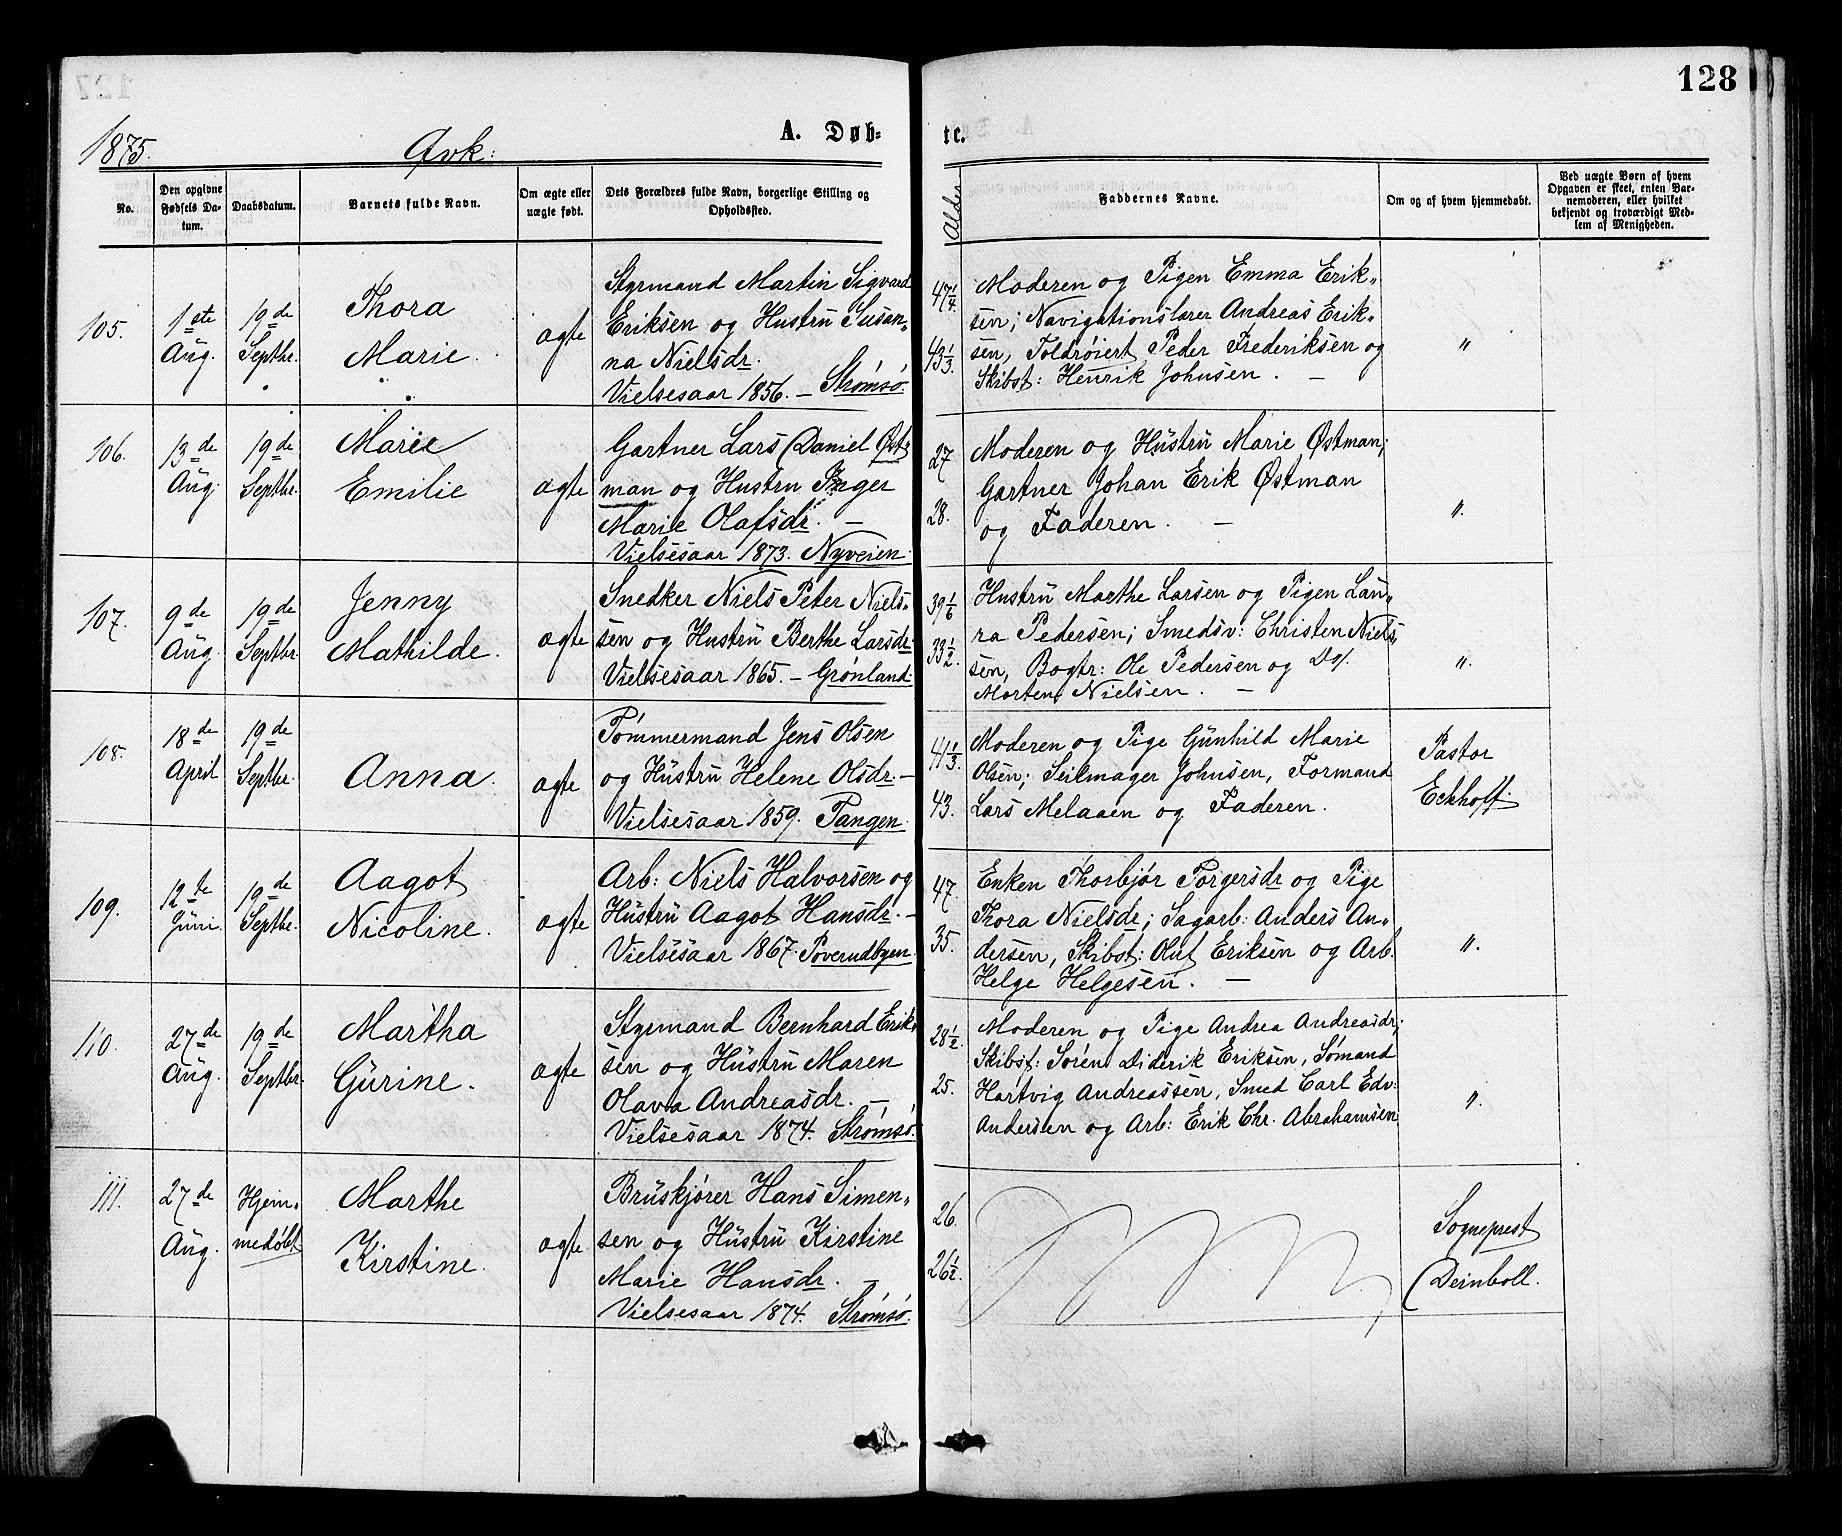 128
1875.
Qvk:
A. Døb-
te.
No.
Den opgivne
Fødsels Da-
tum.
Daabsdatum.
Barnets fulde Navn.
Om ægte eller
uægte født.
Dets Forældres fulde Navn, borgerlige Stilling og
Opholdssted.
Alder
Faddernes Navne.
Om og af hvem hjemmedøbt.
Ved uægte Børn af hvem
Opgaven er skeet, enten Bar-
nemoderen, eller hvilket
bekjendt og troværdigt Med-
lem af Menigheden.
105.
1ste
Aug.
19de
Septbr.
Thora
Marie
ægte
Styrmand Martin Sigvard
Eriksen og Hustru Susan-
na Nielsdr.
Vielsesaar 1856. – Strømsø.
47 1/4
43 1/3.
Moderen og Pigen Emma Erik-
sen; Navigationslærer Andreas Erik-
sen, Toldrøiert Peder Frederiksen og
Skibst: Henrik Johnsen. –
"
106.
13de
Aug.
19de
Septbr.
Marie
Emilie
ægte
Gartner Lars Daniel Øst-
man og Hustru Inger
Marie Olafsdr. –
Vielsesaar 1873. Nyveien.
27
28.
Moderen og Hustru Marie Østman;
Gartner Johan Erik Østman
og Faderen. –
".
107.
9de
Aug.
19de
Septbr.
Jenny
Mathilde.
ægte
Snedker Niels Peter Niels-
sen og Hustru Berthe Larsdr.
Vielsesaar 1865. – Grønland.
39 1/6
33 1/2.
Hustru Marthe Larsen og Pigen Lau-
ra Pedersen; Smedsv: Christen Niels-
sen, Bogtr: Ole Pedersen og Do/.
Morten Nielsen. –
".
108.
18de
April
19de
Septbr.
Anna.
ægte
Tømmermand Jens Olsen
og Hustru Helene Olsdr. –
Vielsesaar 1859. Tangen.
41 1/3
43.
Moderen og Pige Gunhild Marie
Olsen; Seilmager Johnsen, Formand
Lars Melaaen og Faderen.
Pastor
Eckhoff.
109.
12te
Juni.
19de
Septbr.
Aagot
Nicoline.
ægte
Arb: Niels Halvorsen og
Hustru Aagot Hansdr. –
Vielsesaar 1867. Poverudbyen.
47.
35.
Enken Thorbjør Torgersdr og Pige
Thora Nielsdr; Sagarb: Anders An-
dersen, Skibst: Oluf Eriksen og Arb.
Helge Helgesen. –
".
110.
27de
Aug.
19de
Septbr.
Martha
Gurine.
ægte
Styrmand Bernhard Erik-
sen og Hustru Maren
Olava Andreasdr. –
Vielsesaar 1874. Strømsø.
28 1/2
25.
Moderen og Pige Andrea Andreasdr;
Skibst: Søren Diderik Eriksen, Sømand
Hartvig Andreassen, Smed Carl Edv:
Andersen og Arb: Erik Chr. Abrahamsen
".
111.
27de
Aug.
Hjem-
medøbt
Marthe
Kirstine.
ægte
Bruskjører Hans Simen-
sen og Hustru Kirstine
Marie Hansdr. –
Vielsesaar 1874. Strømsø.
26.
26 1/2.
Sogneprest
Deinboll.